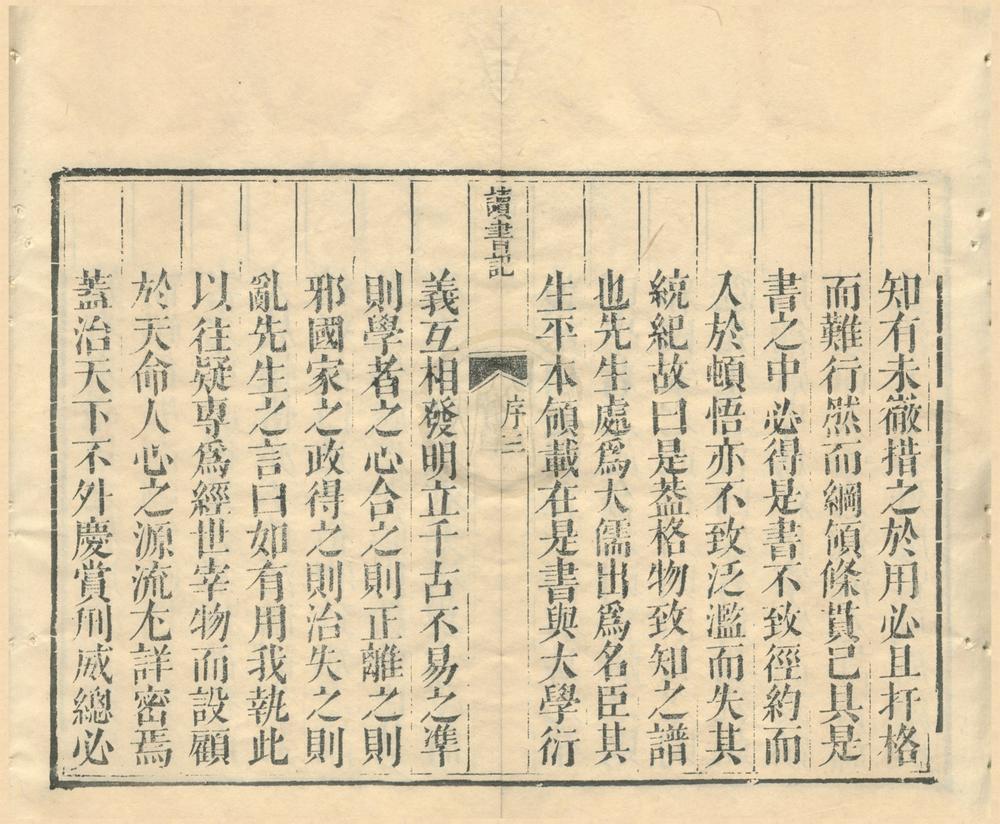 知有未徹措之於用必且扞格
而難行然而綱領條貫已具是
書之中必得是書不致徑約而
入於頓悟亦不致泛濫而失其
統紀故曰是葢格物致知之譜
也先生處爲大儒出爲名臣其
生平本領載在是書與大學衍
讀書記
序二
義互相發明立千古不易之準
則學者之心合之則正離之則
邪國家之政得之則治失之則
亂先生之言曰如有用我執此
以往疑專爲經世宰物而設顧
於天命人心之源流尢詳密焉
蓋治天下不外慶賞刑威總必